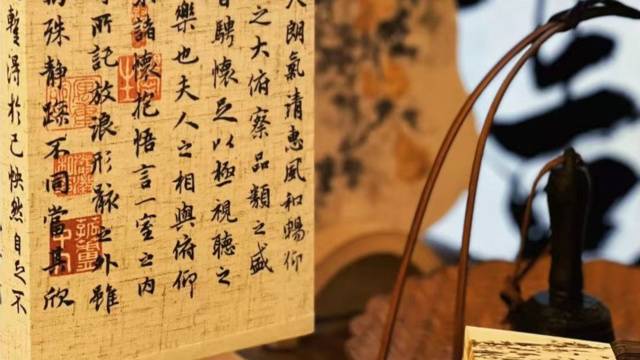 天朗氣清惠風和暢仰
之大俯察品類之盛
目騁懷足以極視聽之
樂也夫人之相與俯仰
諸懷抱悟言一室之內
所託放浪形骸之外雖
殊静躁不同當其欣
蹔得於己快然自足不